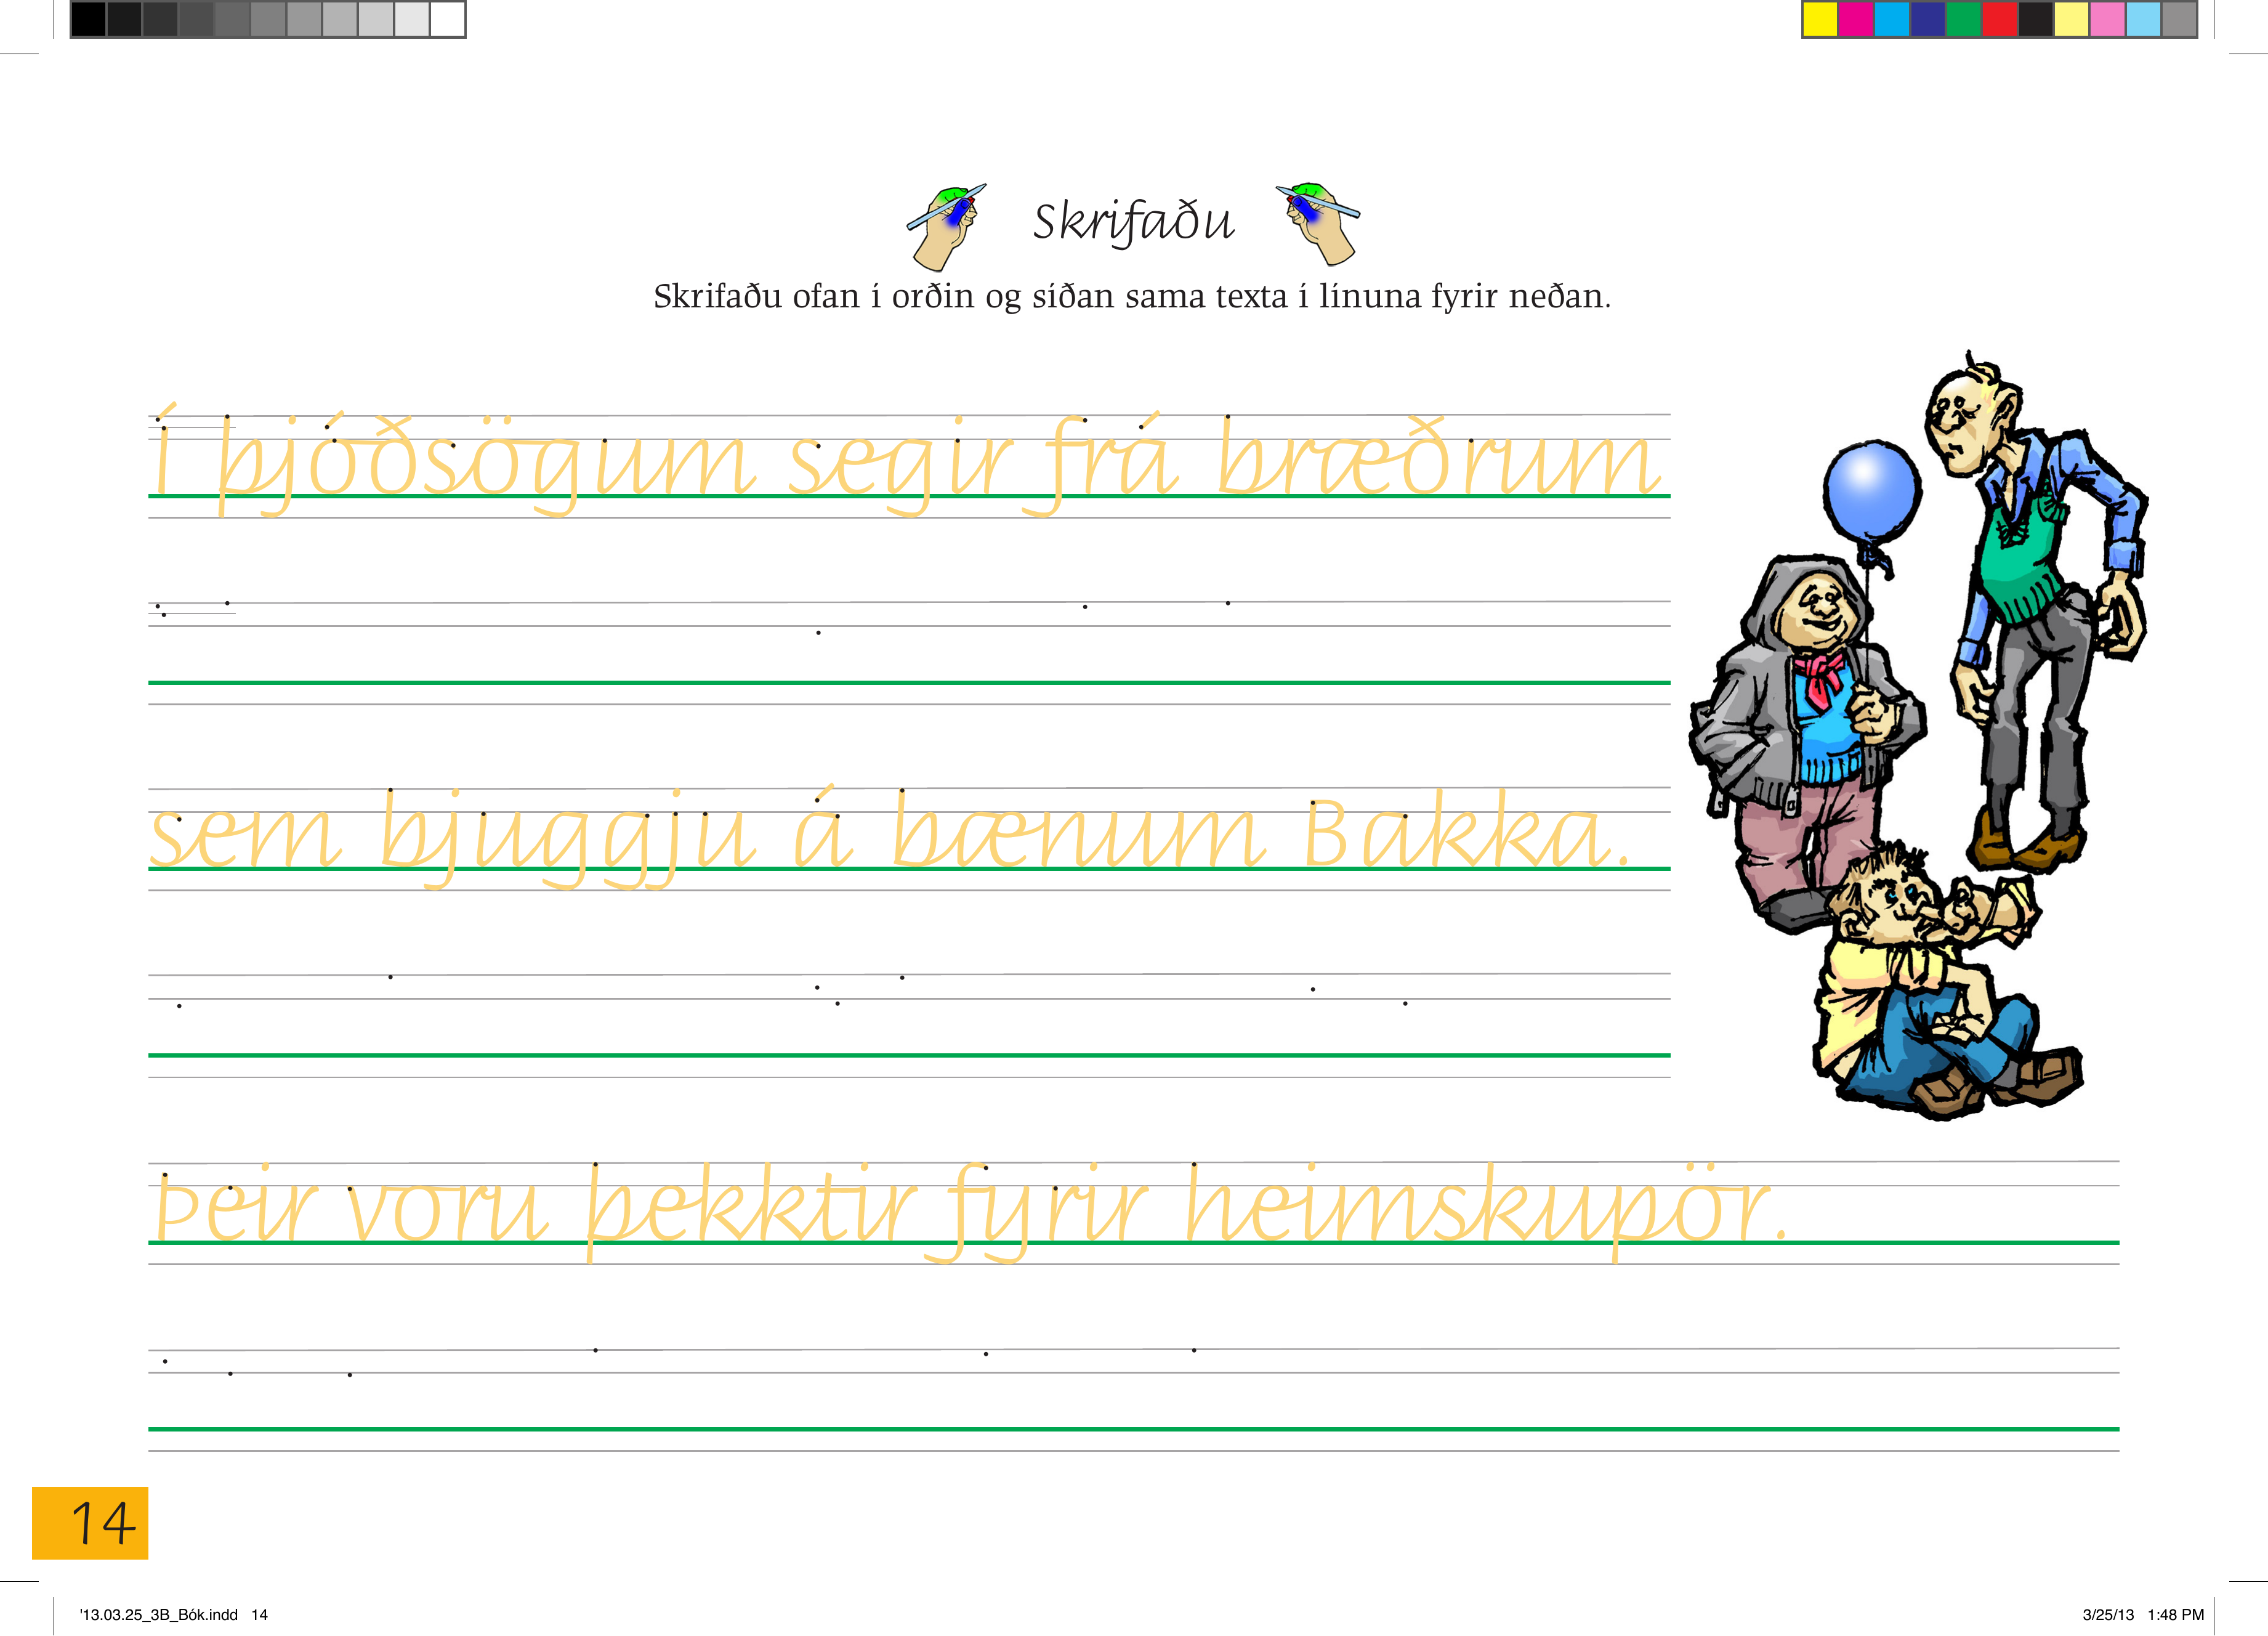 Skrifaðu
Skrifaðu ofan í orðin og síðan sama texta í línuna fyrir neðan.
Í þjóðsögum segir frá bræðrum
sem bjuggju á bænum Bakka.
Þeir voru þekktir fyrir heimskupör.
14
'13.03.25_3B_Bók.indd 14
3/25/13 1:48 PM